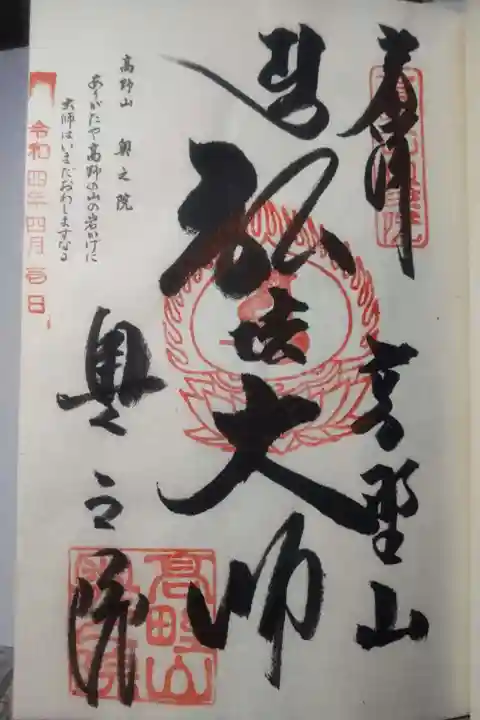 奉拝
高野山
弘法大師
奥之院
高野山
高野山 奥之院
ありがたや高野の山の岩かげに
大師はいまだおわしますなる
令和四年四月 日